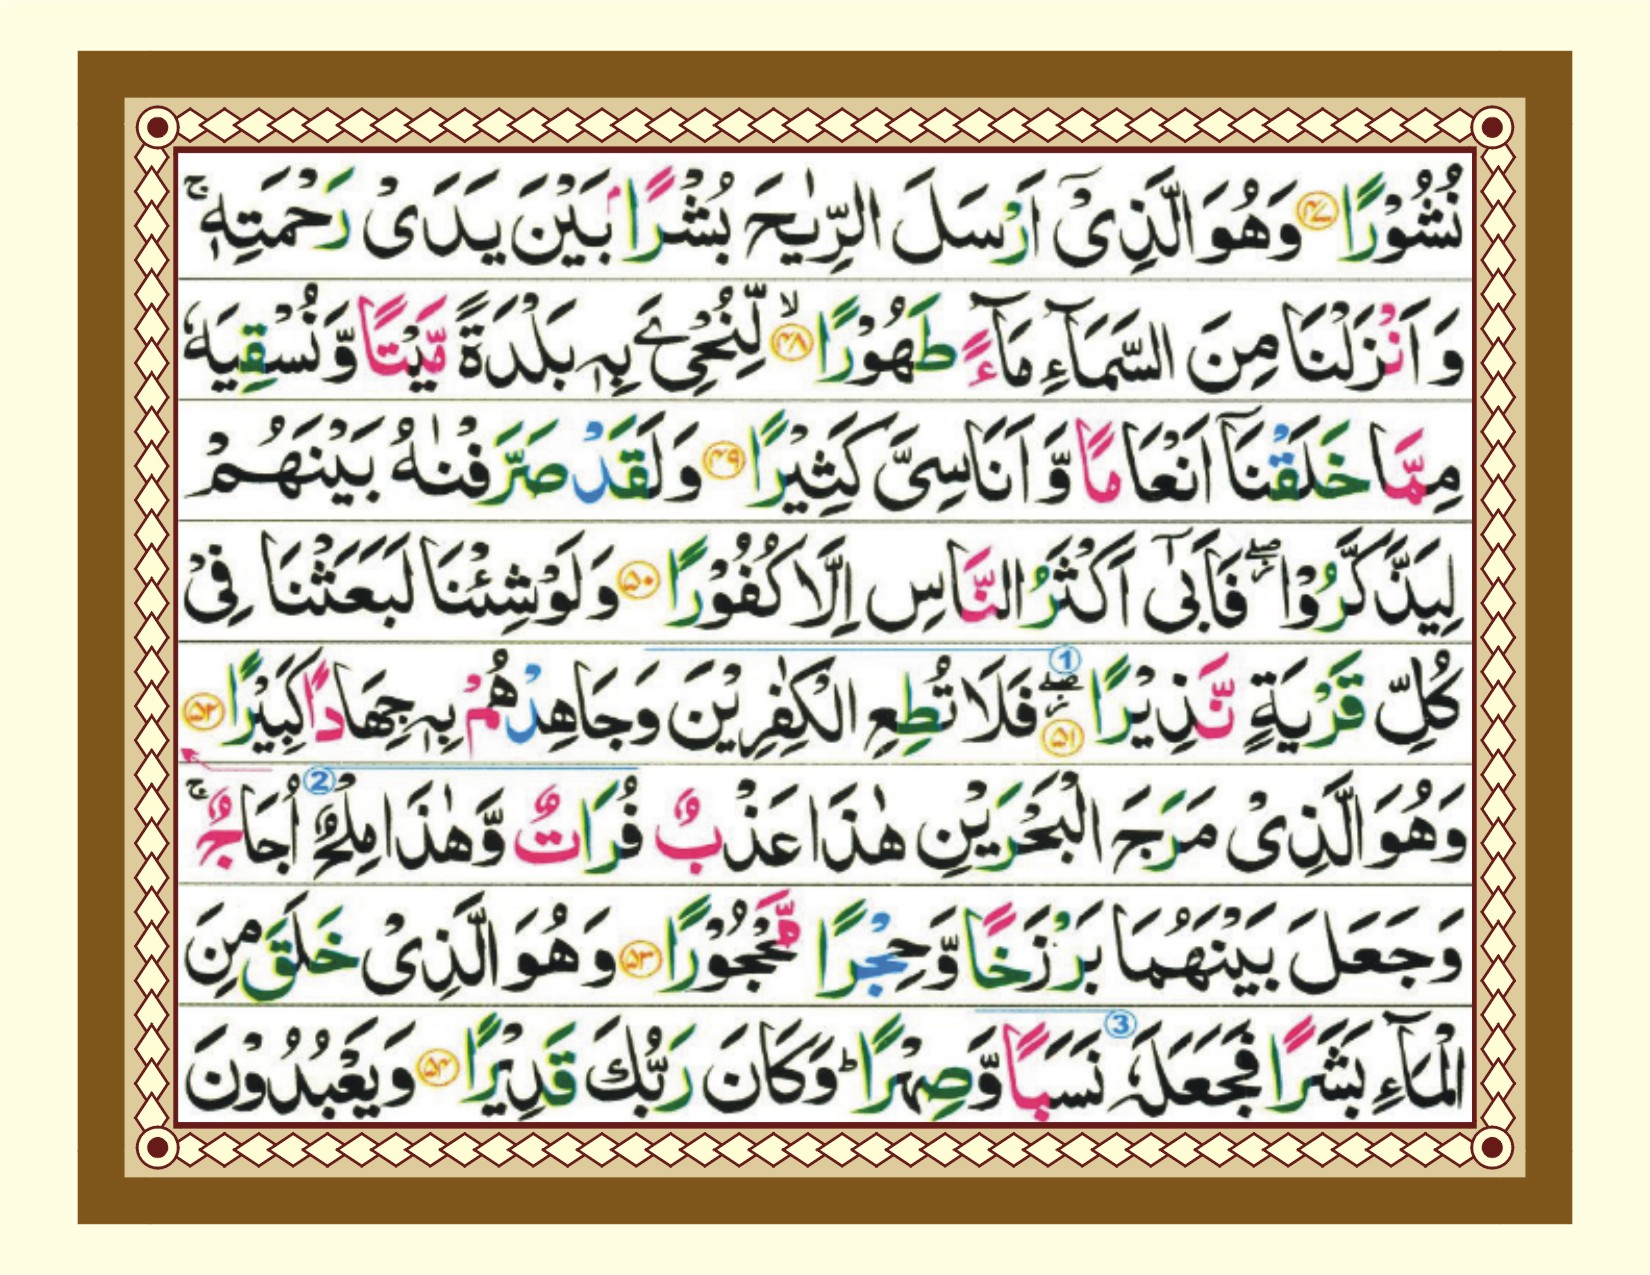 نُشُوْرًا ۴۷ وَهُوَ الَّذِیْۤ اَرْسَلَ الرِّیٰحَ بُشْرًۢا بَیْنَ یَدَیْ رَحْمَتِهٖ ۚ
وَ اَنْزَلْنَا مِنَ السَّمَآءِ مَآءً طَهُوْرًا ۙ ۴۸ لِّنُحْیَِۧ بِهٖ بَلْدَةً مَّیْتًا وَّ نُسْقِیَهٗ
مِمَّا خَلَقْنَاۤ اَنْعَامًا وَّ اَنَاسِیَّ كَثِیْرًا ۴۹ وَ لَقَدْ صَرَّفْنٰهُ بَیْنَهُمْ
لِیَذَّكَّرُوْا ۖؗ فَاَبٰۤی اَكْثَرُ النَّاسِ اِلَّا كُفُوْرًا ۵۰ وَ لَوْ شِئْنَا لَبَعَثْنَا فِیْ
كُلِّ قَرْیَةٍ نَّذِیْرًا ۖؗ ۵۱ 1 فَلَا تُطِعِ الْكٰفِرِیْنَ وَ جَاهِدْهُمْ بِهٖ جِهَادًا كَبِیْرًا ۵۲
وَهُوَ الَّذِیْ مَرَجَ الْبَحْرَیْنِ هٰذَا عَذْبٌ فُرَاتٌ وَّ هٰذَا مِلْحٌ 2 اُجَاجٌ ۚ
وَ جَعَلَ بَیْنَهُمَا بَرْزَخًا وَّ حِجْرًا مَّحْجُوْرًا ۵۳ وَ هُوَ الَّذِیْ خَلَقَ مِنَ
الْمَآءِ بَشَرًا فَجَعَلَهٗ 3 نَسَبًا وَّ صِهْرًا ؕ وَ كَانَ رَبُّكَ قَدِیْرًا ۵۴ وَ یَعْبُدُوْنَ